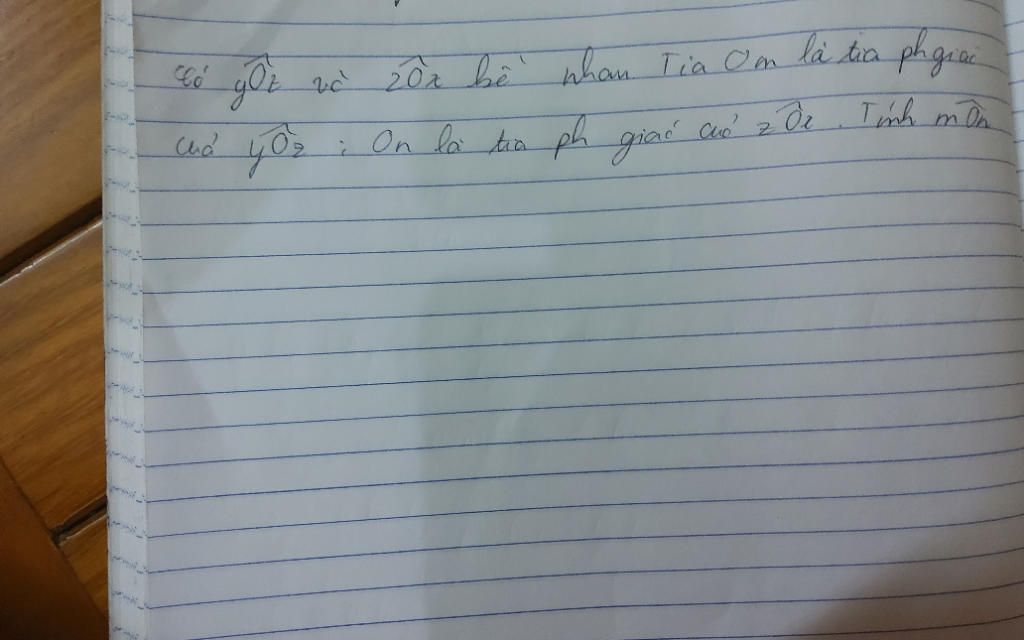 có yÔz và zÔx kề nhau Tia Om là tia ph giác
cuả yÔz ; On là tia ph giác cuả zÔx . Tính mÔn